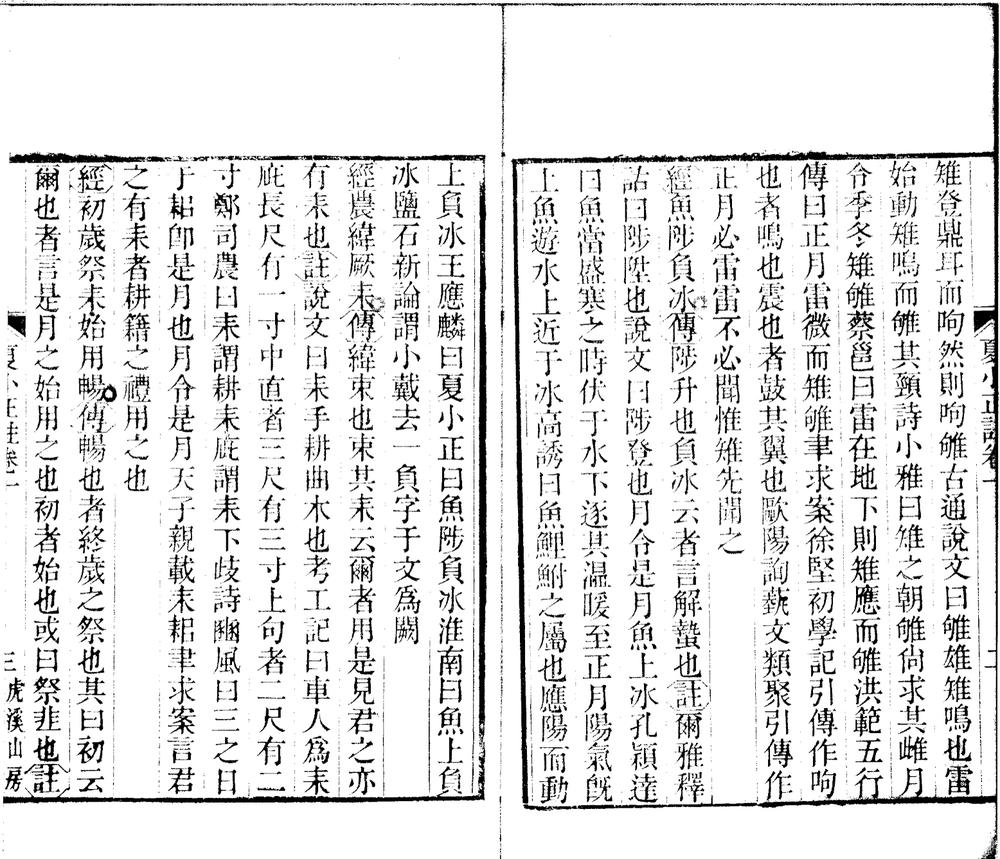 雉登鼎耳而呴然則呴雊古通說文曰雊雄雉鳴也雷
始動雉鳴而雊其頸詩小雅曰雉之朝雊尙求其雌月
令季冬雉雊蔡邕曰雷在地下則雉應而雊洪範五行
傳曰正月雷微而雉雊聿求案徐堅初學記引傳作呴
也者鳴也震也者鼓其翼也歐陽詢藝文類聚引傳作
正月必雷雷不必聞惟雉先聞之
經魚陟負冰傳陟升也負冰云者言解蟄也註爾雅釋
詁曰陟陞也說文曰陟登也月令是月魚上冰孔穎達
曰魚當盛寒之時伏于水下逐其温暖至正月陽氣旣
上魚遊水上近于冰高誘曰魚鯉鮒之屬也應陽而動
夏小正註卷一
二
上負冰王應麟曰夏小正曰魚陟負冰淮南曰魚上負
冰鹽石新論謂小戴去一負字于文爲闕
經農緯厥耒傳緯束也束其耒云爾者用是見君之亦
有耒也註說文曰耒手耕曲木也考工記曰車人爲耒
庛長尺有一寸中直者三尺有三寸上句者二尺有二
寸鄭司農曰耒謂耕耒庛謂耒下歧詩豳風曰三之日
于耜卽是月也月令是月天子親載耒耜聿求案言君
之有耒者耕籍之禮用之也
經初歲祭耒始用暢傳暢也者終歲之祭也其曰初云
爾也者言是月之始用之也初者始也或曰祭韭也註
夏小正註卷一
三
虎溪山房